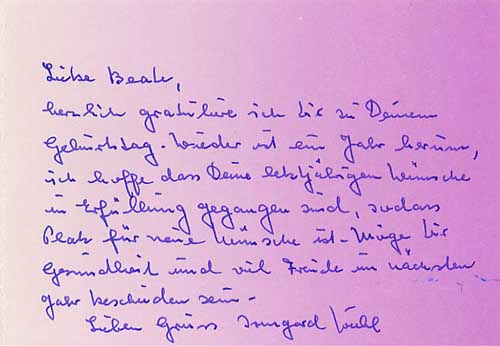 Liebe Beate,
herzlich gratuliere ich Dir zu Deinem
Geburtstag. Wieder ist ein Jahr herum,
ich hoffe dass Deine letztjährigen Wünsche
in Erfüllung gegangen sind, sodass
Platz für neue Wünsche ist - Möge Dir
Gesundheit und viel Freude im nächsten
Jahr beschieden sein -
Lieben Gruss Irmgard